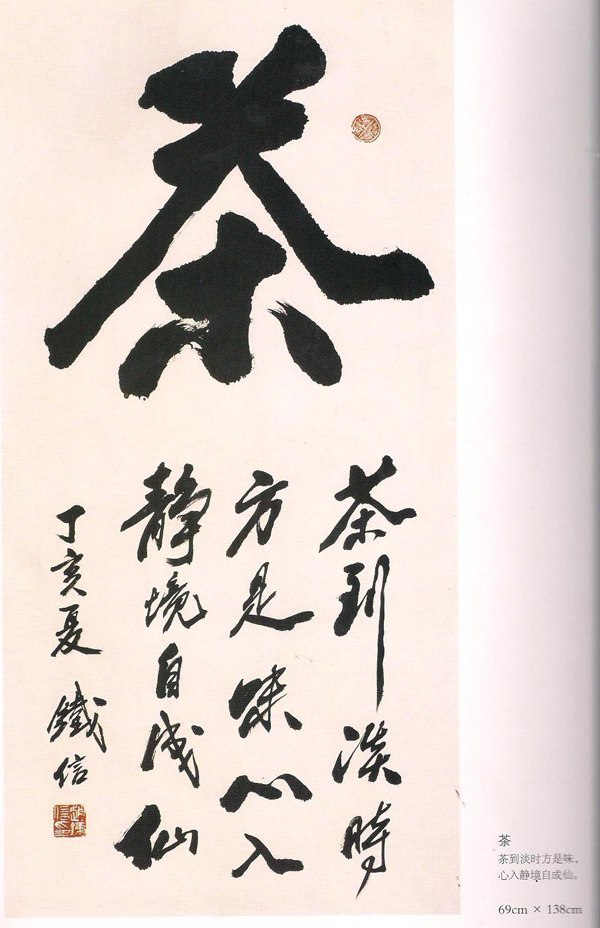 茶
茶到淡時
方是味心入
静境自成仙
丁亥夏 鐵信
茶
茶到淡时方是味。
心入静境自成仙。
69cm × 138cm